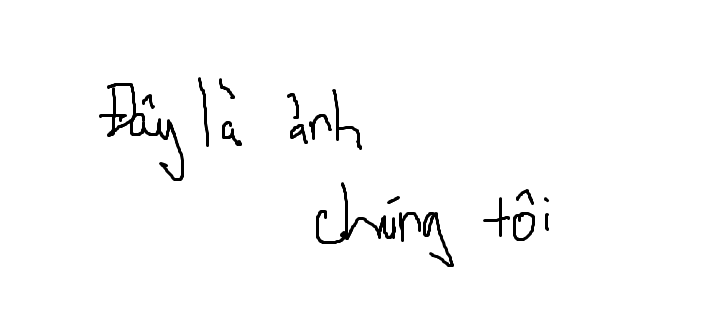 Đây là ảnh
chúng tôi